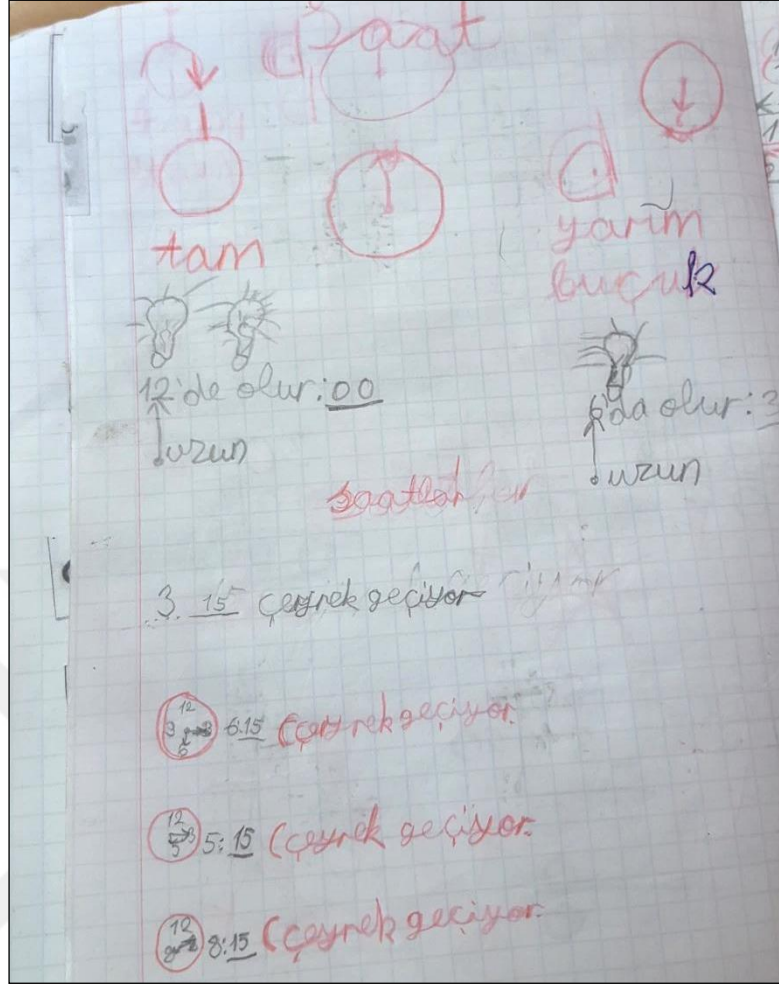 saat
tam
yarım
buçuk
12'de olur:00
6'da olur:3
uzun
uzun
saatler
3. 15 çeyrek geçiyor
12
6:15 (çeyrek geçiyor.
12
5
5:15 (çeyrek geçiyor.
12
8:15 (çeyrek geçiyor.